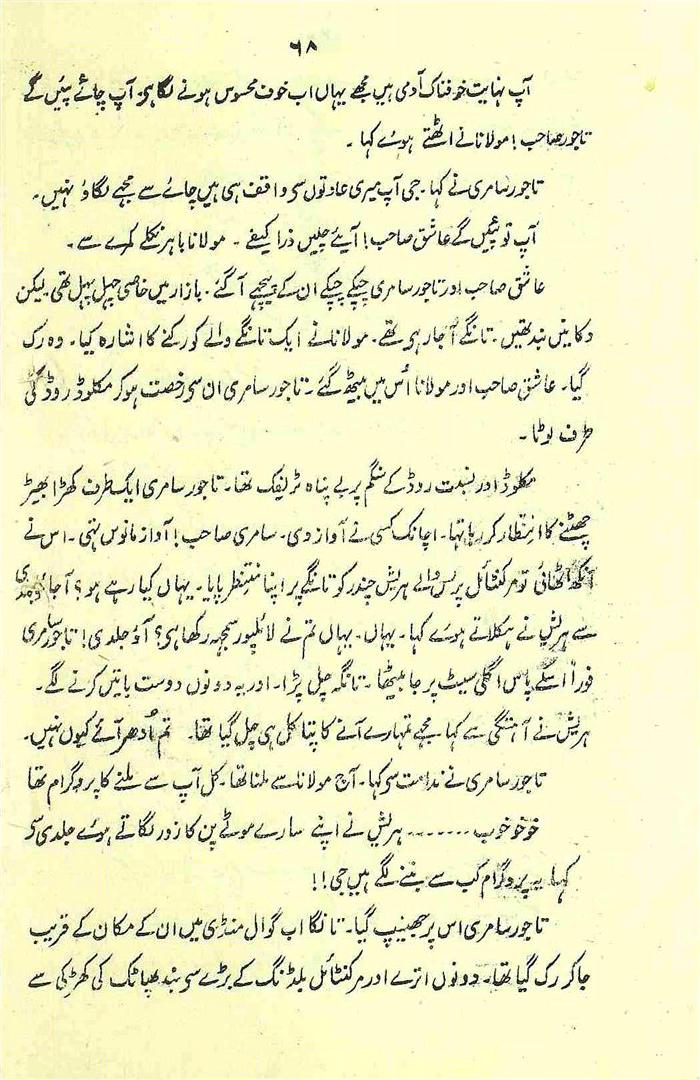 ۶۸
آپ نہایت خوفناک آدمی ہیں مجھے یہاں اب خوف محسوس ہونے لگا ہی آپ چائے پیئں گے
تاجور صاحب! مولانا نے اٹھتے ہوئے کہا ۔
تاجور سامری نے کہا۔ جی آپ میری عادتوں سی واقف ہی ہیں چائے سے مجہے لگاؤ نہیں۔
آپ تو پیئں گے عاشق صاحب! آیئے چلیں ذرا کیفے ۔ مولانا باہر نکلے کمرے سے ۔
عاشق صاحب اور تاجور سامری چپکے چپکے ان کے پیچھے آگئے ۔ بازار میں خاصی چہل پہل تھی لیکن
دکانیں بند تھیں۔ تانگے آ جا رہی تھے۔ مولانا نے ایک تانگے والے کو رکنے کا اشارہ کیا۔ وہ رک
گیا۔ عاشق صاحب اور مولانا اُس میں بیٹھ گئے ۔ تاجور سامری ان سی رخصت ہو کر مکلوڈ روڈ کی
طرف لوٹا ۔
مکلوڈ اور نسبت روڈ کے سنگم پر بے پناہ ٹریفک تھا۔ تاجور سامری ایکطرف کھڑا بھیڑ
چھٹنے کا انتظار کر رہا تہا۔ اچانک کسی نے آواز دی۔ سامری صاحب! آواز مانوس تہی ۔ اس نے
آنکھ اٹھائی تو مرکنٹائل پریس والے ہریش چندر کو تانگے پر اپنا منتظر پایا۔ یہاں کیا رہے ہو؟ آ جاؤ جلدی
سے ہریش نے ہکلاتے ہوئے کہا۔ یہاں۔ یہاں تم نے لائلپور سمجہہ رکھا ہی؟ آؤ جلدی! تاجور سامری
فوراً اسکے پاس اگلی سیٹ پر جا بیٹھا ۔ تانگہ چل پڑا۔ اور یہ دونوں دوست باتیں کرنے لگے۔
ہریش نے آہستگی سے کہا مجہے تمہارے آنے کا پتا کل ہی چل گیا تھا۔ تم اُدھر آئے کیوں نہیں۔
تاجور سامری نے ندامت سی کہا۔ آج مولانا سے ملنا تھا۔ کل آپ سے ملنے کا پروگرام تھا
خوخو خوب ....... ہریش نے اپنے سارے موٹے پن کا زور لگاتے ہوئے جلدی سی
کہا یہ پروگرام کب سے بننے لگے ہیں جی!!
تاجور سامری اس پر جھینپ گیا۔ تانگا اب گوال منڈی میں ان کے مکان کے قریب
جا کر رک گیا تھا۔ دونوں اترے اور مرکنٹائل بلڈنگ کے بڑے سی بند پھاٹک کی کھڑکی سے